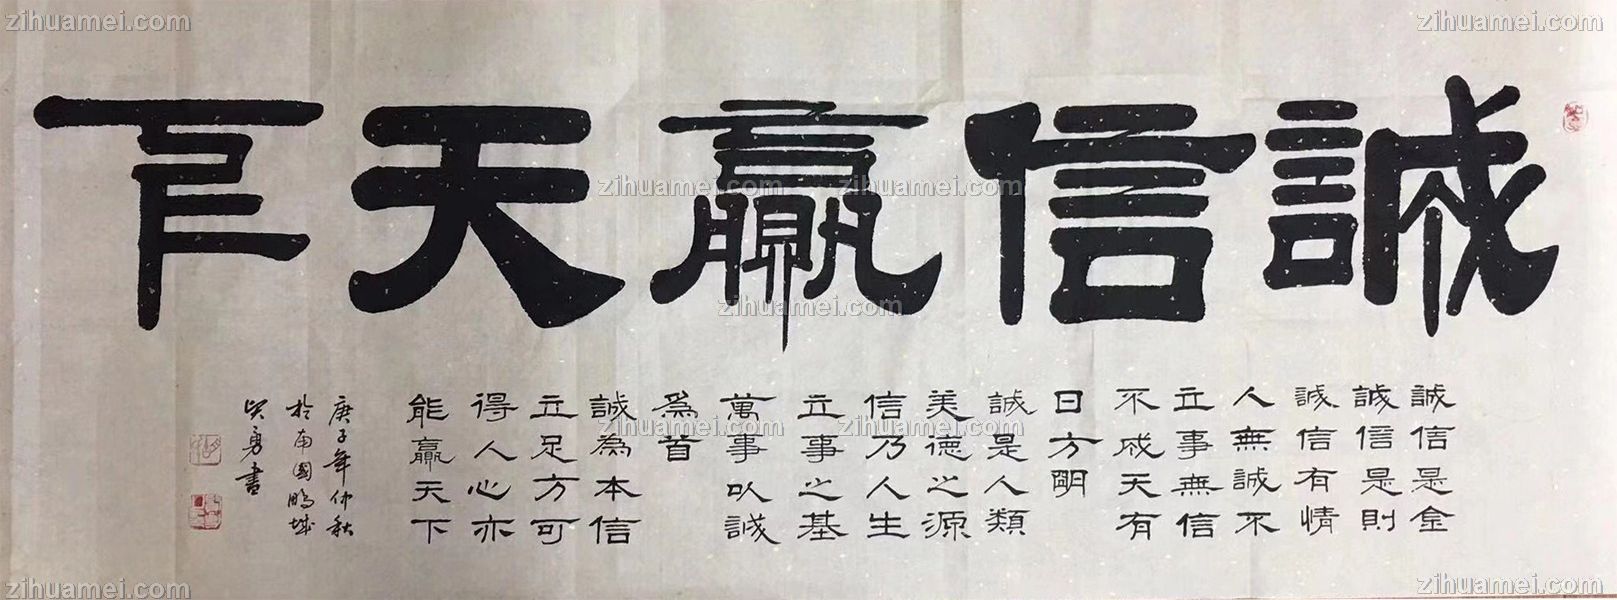 zihuamei.com
zihuamei.com
zihuamei.com
誠信贏天下
zihuamei.com
zihuamei.com
zihuamei.com
誠信是金
誠信是則
誠信有情
人無誠不
立事無信
不成天有
日方明
誠是人類
美德之源
信乃人生
立事之基
萬事以誠
為首
誠為本信
立足方可
得人心亦
能贏天下
庚子年仲秋
於南國鵬城
勇書
zihuamei.com
zihuamei.com
zihuamei.com
zihuamei.com
zihuamei.com